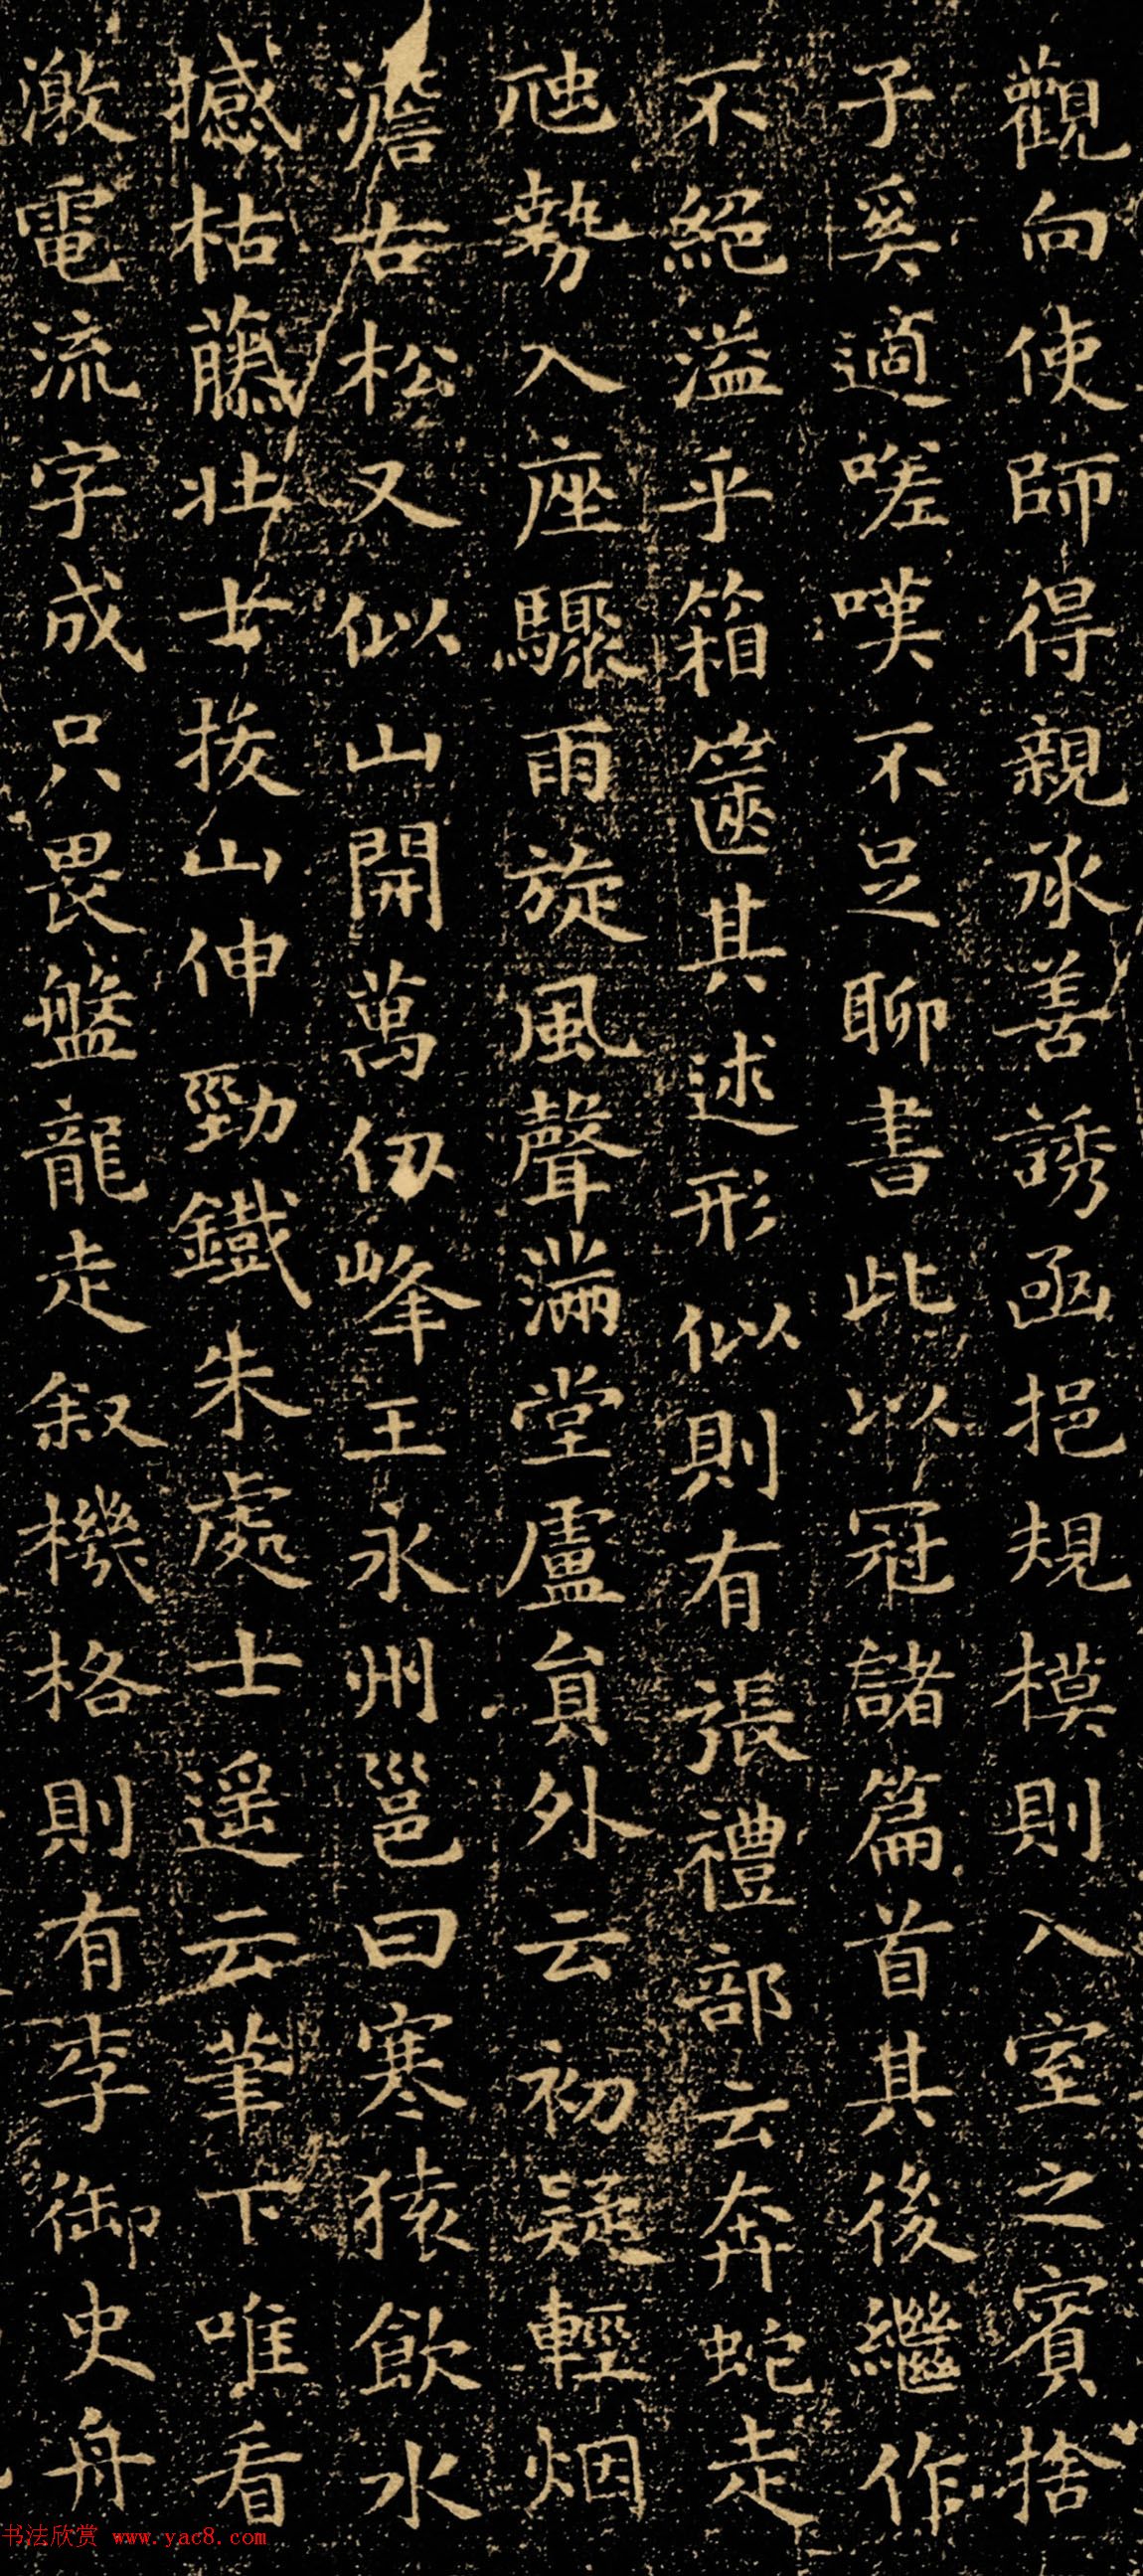 觀向使師得親承善誘函挹規模則入室之賓捨
子奚適嗟嘆不足聊書此以冠諸篇首其後繼作
不絕溢乎箱篋其述形似則有張禮部云奔蛇走
虺勢入座驟雨旋風聲滿堂盧員外云初疑輕烟
澹古松又似山開萬仞峰王永州邕曰寒猿飲水
撼枯藤壯士拔山伸勁鐵朱處士遥云筆下唯看
激電流字成只畏盤龍走叙機格則有李御史舟
书法欣赏 www.yac8.com